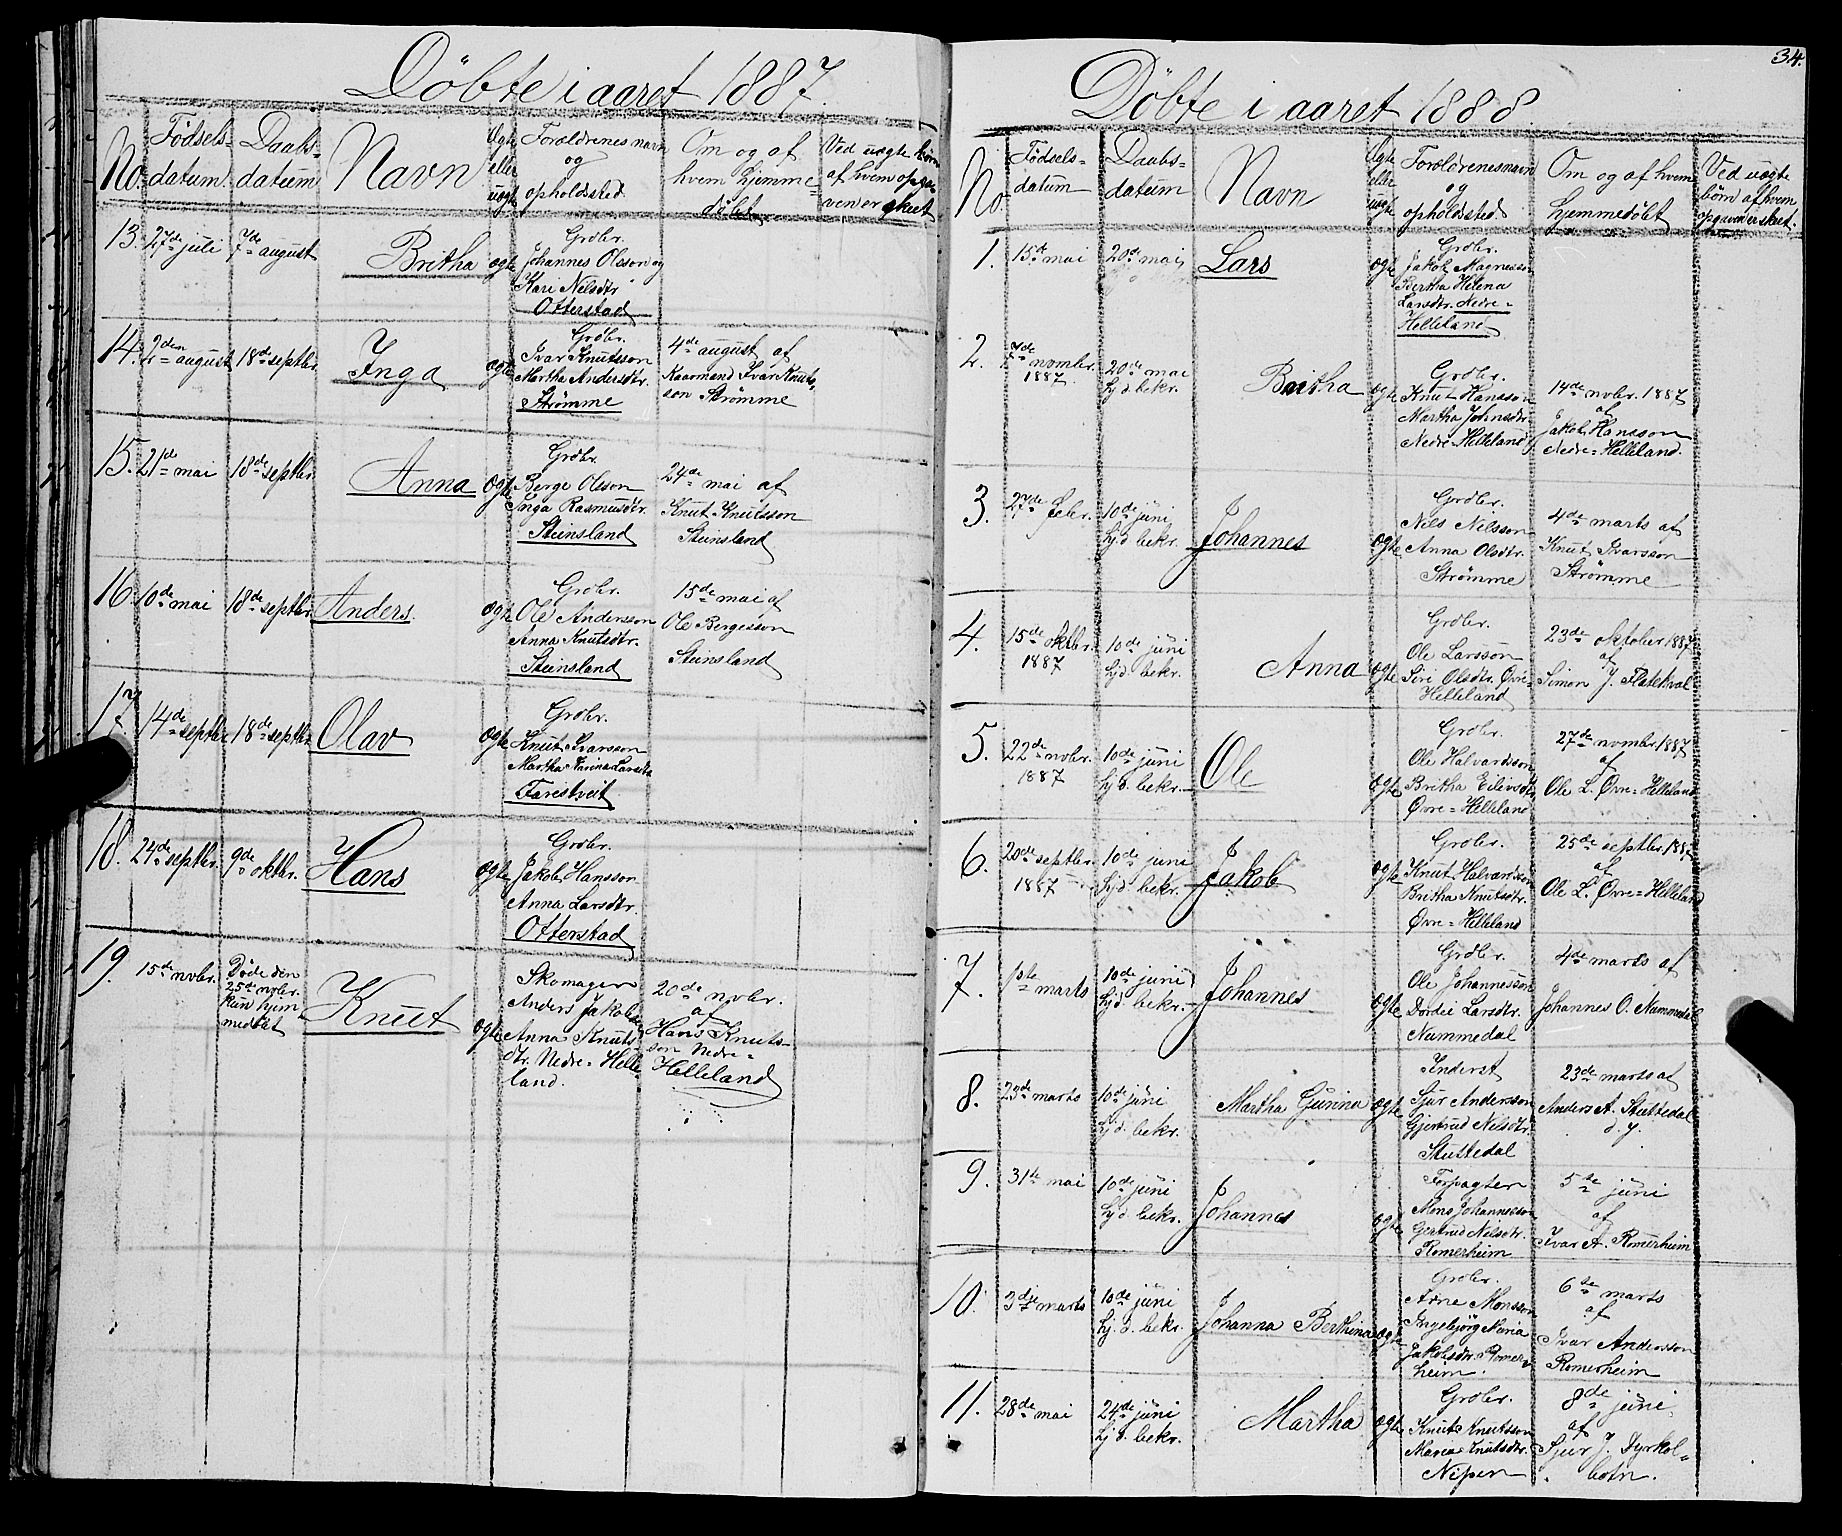 Döbte i aaret 1887.
No. Fødsels-datum. Daabs-datum Navn Ægte eller uægte Forældrenes navn og opholdsted. Om og af hvem hjemme=døbt Ved uægte børn af hvem opga-ven er skeet
13. 27de juli 7de august Britha ægte Grdbr.
Johannes Olsson og
Kari Nilsdtr
Otterstad
14. 2den august 18de septbr. Inga ægte Grdbr.
Ivar Knutsson
Martha Andersdtr.
Strømme
4de august af
Kaarmand Ivar Knuts-
son Strømme
15. 21de mai 18de septbr. Anna ægte Grdbr.
Berge Olsson
Inga Rasmusdtr.
Steinsland
24de mai af
Knut Knutsson
Steinsland
16. 10de mai 18de septbr. Anders. ægte Grdbr.
Ole Andersson
Anna Knutsdtr.
Steinsland
15de mai af
Ole Bergesson
Steinsland
17. 14de septbr 18de septbr. Olav ægte Grdbr.
Knut Ivarsson
Martha Karina Larsdtr
Farestveit
18. 24de septbr. 9de oktbr. Hans ægte Grdbr.
Jakob Hansson
Anna Larsdtr.
Otterstad
19. 15de nvbr. Døde den
25de nvbr.
kun hjem
medøbt
Knut ægte Skomager
Anders Jakobs
Anna Knuts-
dtr. Nedre=Helle
land.
20de nvbr.
af
Hans Knuts-
son Nedre=
Helleland
34.
Döbte i aaret 1888.
No Fødsels-datum Daabs-datum Navn Ægte eller uægte Forældrenes navn og opholdsted Om og af hvem hjemmedøbt Ved uægte børn af hvem opgaven er skeet.
1. 15de mai 20de mai Lars ægte Grdbr.
Jakob Magnesson
Bertha Helena
Larsdtr. Nedre=
Helleland
2. 7de novmbr.
1887.
20de mai
hjd bekr.
Britha ægte Grdbr.
Knut Hansson
Martha Johnsdtr
Nedre=Helleland
14de nvbr. 1887
af
Jakob Hansson
Nedre=Helleland.
3. 27de febr. 10de juni
hjd. bekr.
Johannes ægte Grdbr.
Nils Nilsson
Anna Olsdtr.
Strømme
4de marts af
Knut Ivarsson
Strømme
4. 15de oktbr.
1887
10de juni
hjd. bekr.
Anna ægte Grdbr.
Ole Larsson
Siri Olsdtr. Øvre=
Helleland
23de Oktober 1887
af
Simon J. Flatekval
5. 22de nvbr.
1887
10de juni
hjd. bekr.
Ole ægte Grdbr.
Ole Halvardsson
Britha Eilevsdtr
Øvre=Helleland
27de novmbr. 1887
af
Ole L. Øvre=Helleland
6. 20de septbr.
1887
10de juni
hjd. bekr.
Jakob ægte Grdbr.
Knut Halvardsson
Britha Knutsdtr.
Øvre=Helleland
25de septbr. 1887
af
Ole L. Øvre=Helleland
7. 1ste marts 10de juni
hjd. bekr.
Johannes ægte Grdbr.
Ole Johannesson
Dordei Larsdtr.
Nummedal
4de marts af
Johannes O. Nummedal
8. 23de marts 10de juni
hjd. bekr.
Martha Gurina ægte Inderst
Sjur Andersson
Gjertrud Nilsdtr.
Stuttedal
23de marts af
Anders A. Stuttedal
d. y.
9. 31te mai 10de juni
hjd. bekr.
Johannes ægte Forpagter
Mons Johannesson
Gertrud Nilsdtr.
Romerheim
5te juni
af
Ivar A. Romerheim
10. 3dje marts 10de juni
hj.d. bekr.
Johanna Berthina ægte Grdbr.
Arne Monsson
Ingebjørg Maria
Jakobsdtr. Romer-
heim.
6te marts
af
Ivar Andersson
Romerheim
11. 28de mai 24de juni
hjd. bekr.
Martha ægte Grdbr.
Knut Knutsson
Maria Knutsdtr.
Nipen
8de juni
af
Sjur J. Dyrkol-
botn.